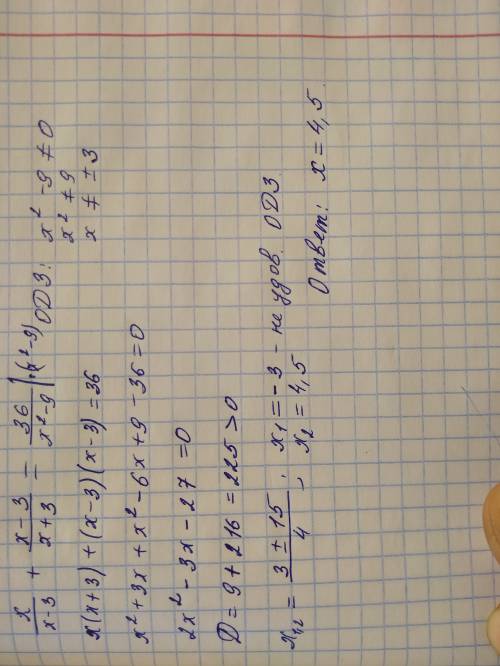 x/(x-3) + (x-3)/(x+3) = 36/(x²-9) |·(x²-9) ОДЗ: x² - 9 ≠ 0
x² ≠ 9
x ≠ ± 3
x(x+3) + (x-3)(x-3) = 36
x² + 3x + x² - 6x + 9 - 36 = 0
2x² - 3x - 27 = 0
D = 9 + 216 = 225 > 0
x₁,₂ = (3 ± 15)/4 ; x₁ = -3 - не удов. ОДЗ
x₂ = 4,5
Ответ: x = 4,5.